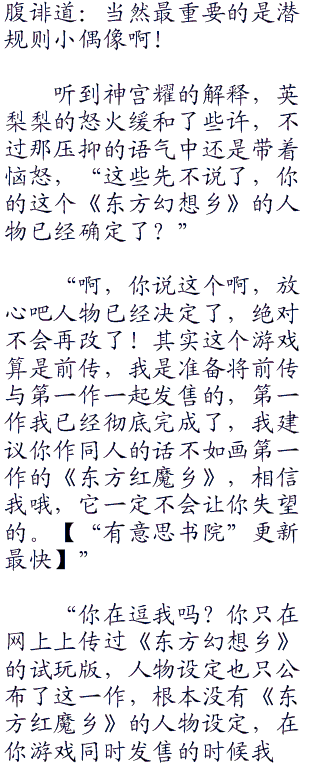 腹诽道：当然最重要的是潜
规则小偶像啊！
听到神宫耀的解释，英
梨梨的怒火缓和了些许，不
过那压抑的语气中还是带着
恼怒，“这些先不说了，你
的这个《东方幻想乡》的人
物已经确定了？”
“啊，你说这个啊，放
心吧人物已经决定了，绝对
不会再改了！其实这个游戏
算是前传，我是准备将前传
与第一作一起发售的，第一
作我已经彻底完成了，我建
议你作同人的话不如画第一
作的《东方红魔乡》，相信
我哦，它一定不会让你失望
的。【“有意思书院”更新
最快】”
“你在逗我吗？你只在
网上上传过《东方幻想乡》
的试玩版，人物设定也只公
布了这一作，根本没有《东
方红魔乡》的人物设定，在
你游戏同时发售的时候我